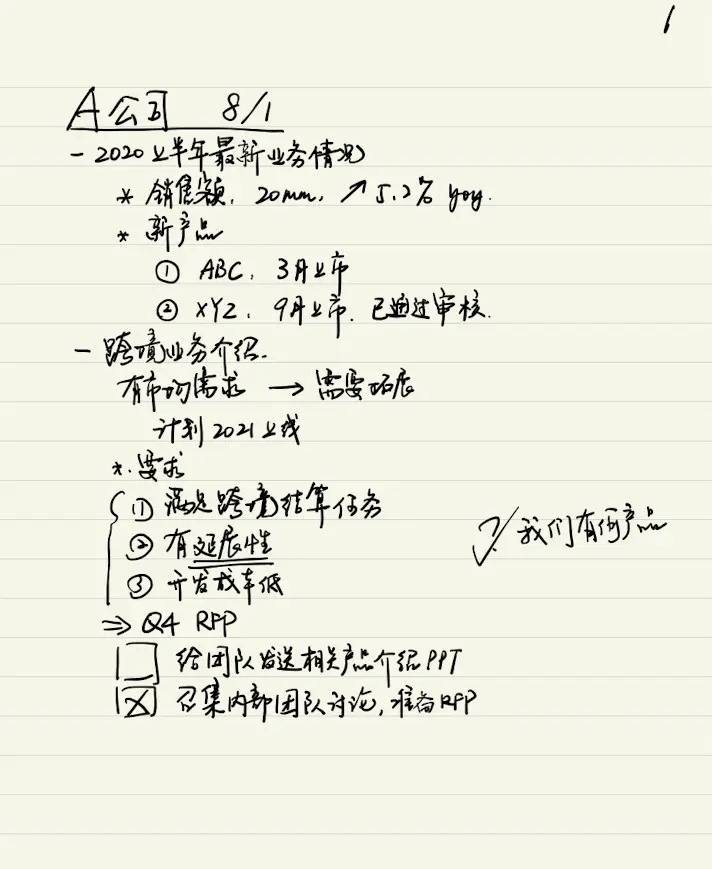 1
A公司 8/1
- 2020上半年最新业务情况
* 销售额, 20mm, ↗ 5.2% yoy.
* 新产品
① ABC, 3月上市
② XYZ, 9月上市, 已通过审核.
- 跨境业务介绍.
有市场需求 → 需要拓展
计划2021上线
*. 要求
① 满足跨境结算任务
② 有延展性
③ 开发成本低
? 我们有何产品
⇒ Q4 RFP
☐ 给团队发送相关产品介绍PPT
☒ 召集内部团队讨论, 准备RFP